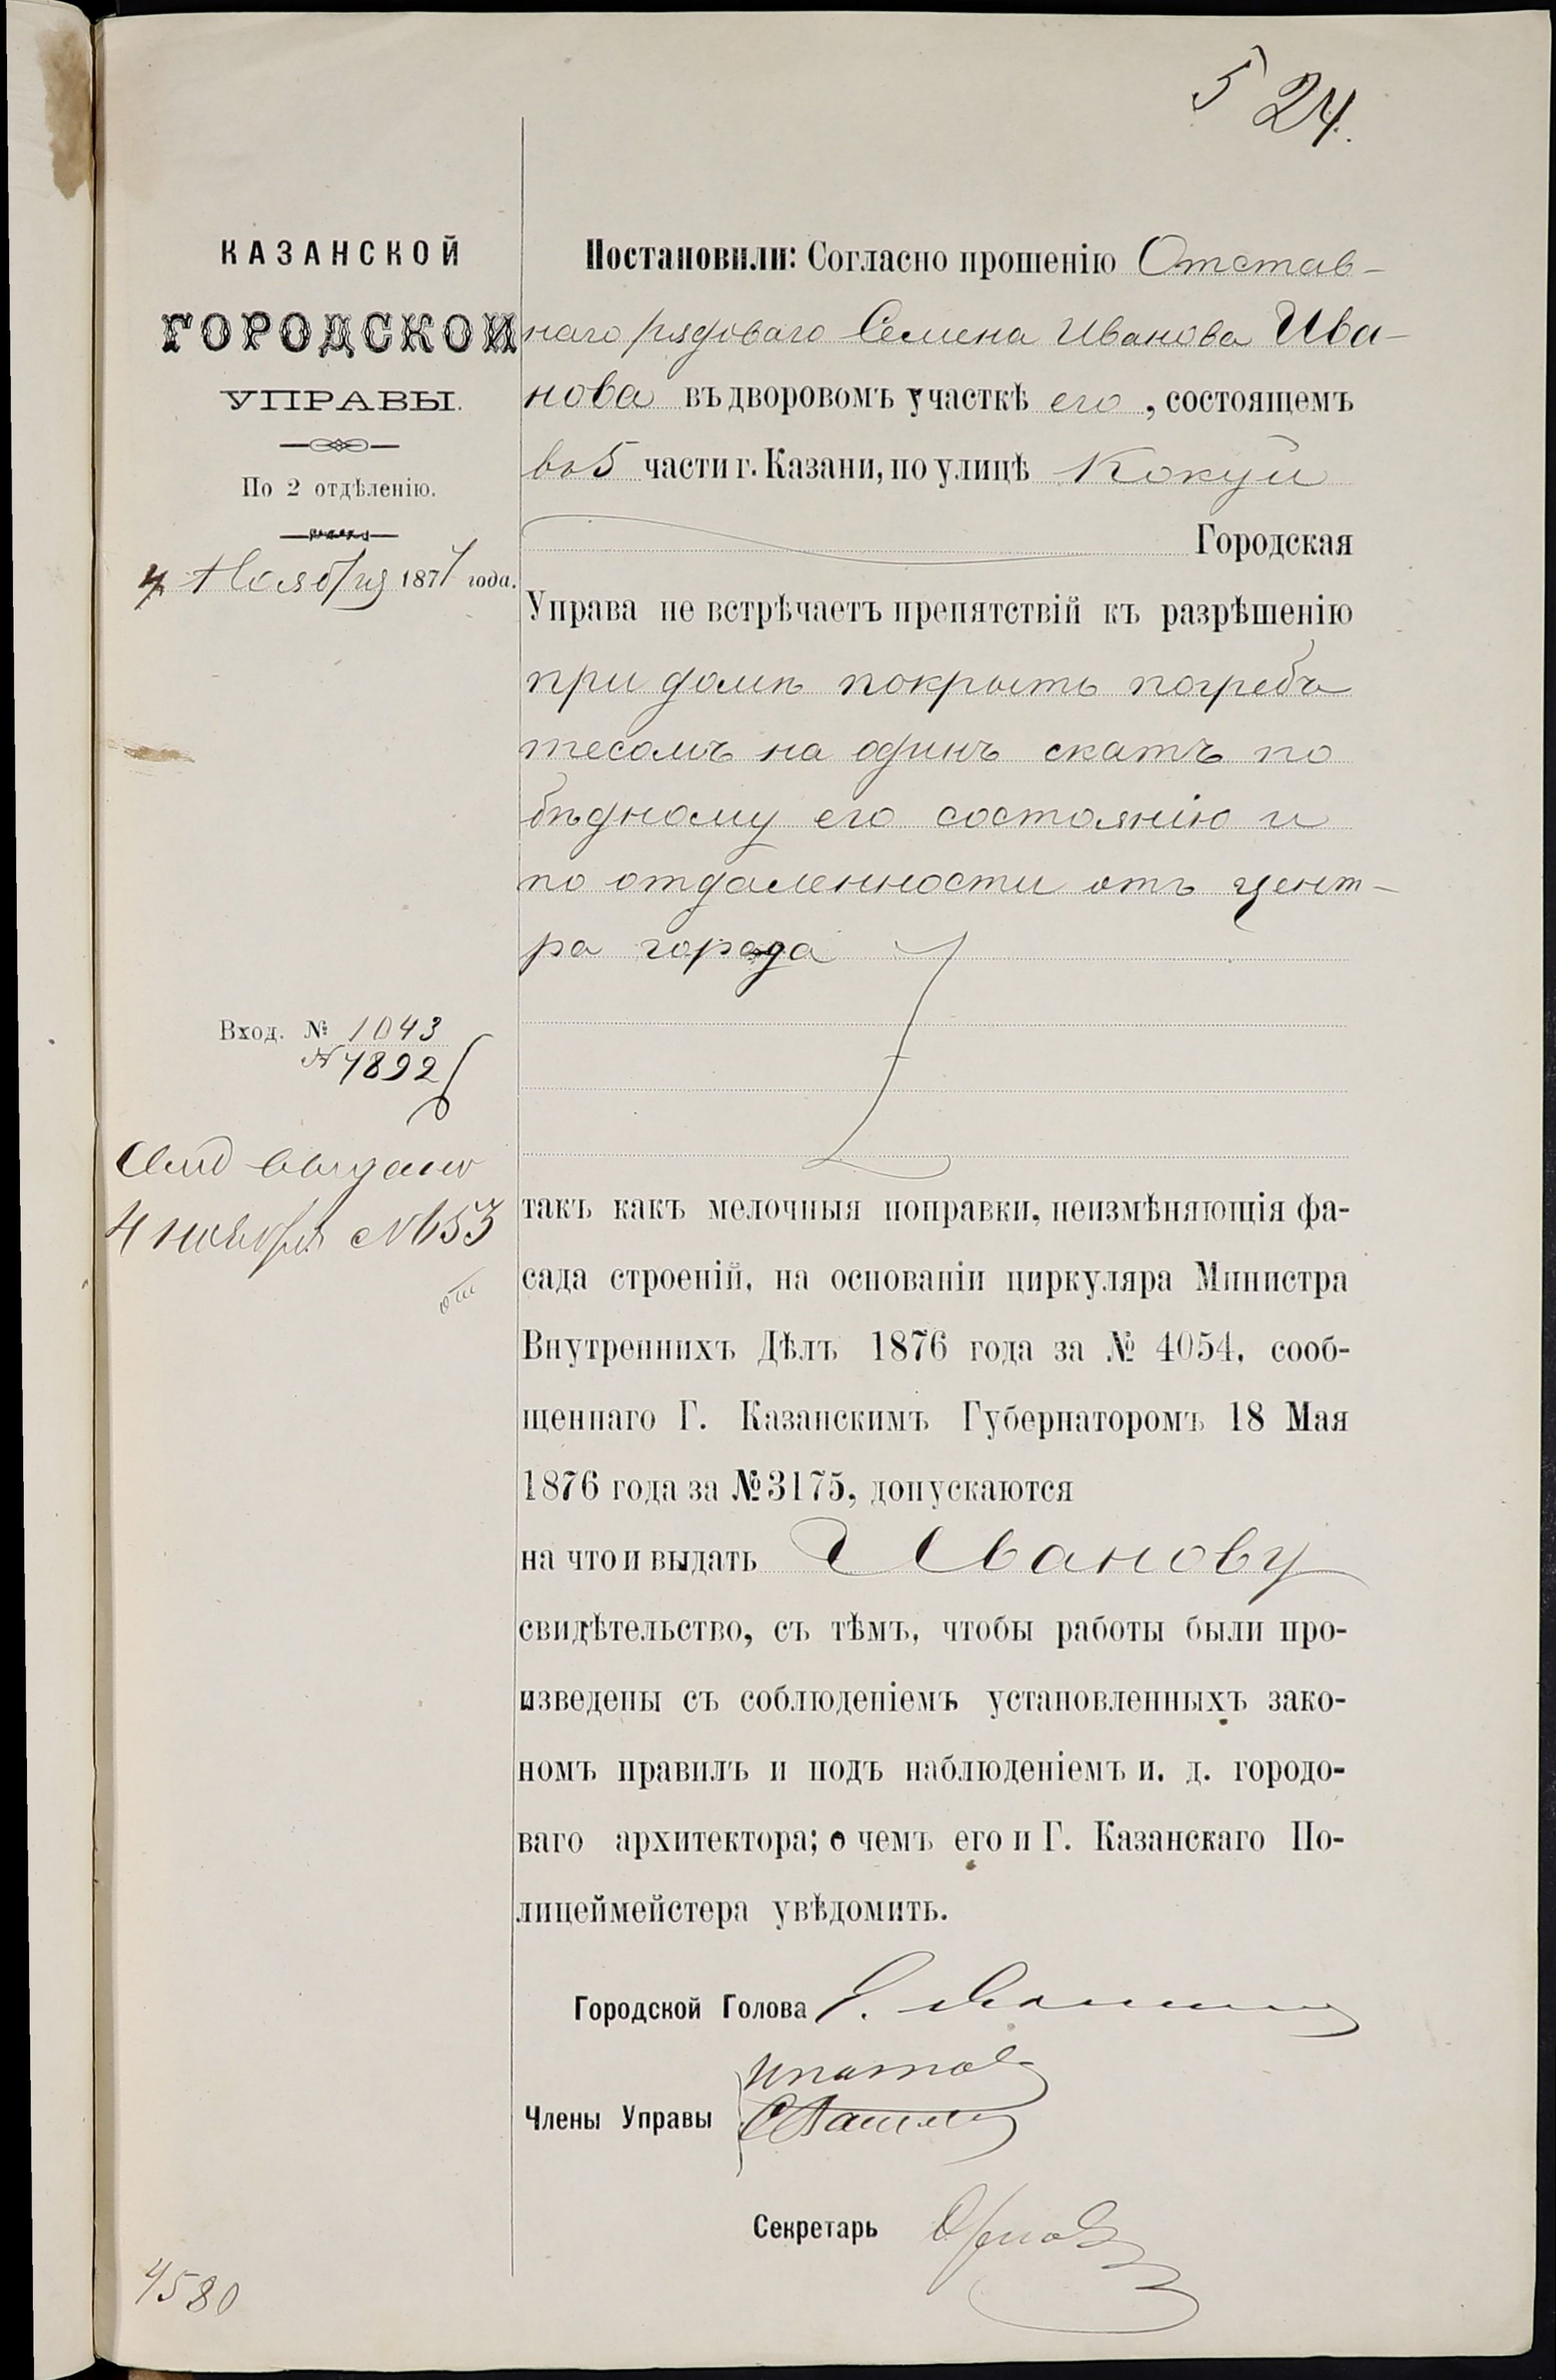 5 24.
КАЗАНСКОЙ
ГОРОДСКОЙ
УПРАВЫ.
По 2 отдѣленію.
4 Ноября 1877 года.
Вход. № 1043
№ 7892
Свид выдано
4 ноября № 653
4580
Постановили: Согласно прошенію Отстав-
наго рядоваго Семена Иванова Ива-
нова въ дворовомъ участкѣ его, состоящемъ
въ 5 части г. Казани, по улицѣ Кокуй
Городская
Управа не встрѣчаетъ препятствій къ разрѣшенію
при домѣ покрыть погребъ
тесомъ на одинъ скатъ по
бѣдному его состоянію и
по отдаленности отъ цент-
ра города
такъ какъ мелочныя поправки, неизмѣняющія фа-
сада строеній, на основаніи циркуляра Министра
Внутреннихъ Дѣлъ 1876 года за № 4054, сооб-
щеннаго Г. Казанскимъ Губернаторомъ 18 Мая
1876 года за № 3175, допускаются
на что и выдать Иванову
свидѣтельство, съ тѣмъ, чтобы работы были про-
изведены съ соблюденіемъ установленныхъ зако-
номъ правилъ и подъ наблюденіемъ и. д. городо-
ваго архитектора; о чемъ его и Г. Казанскаго По-
лицеймейстера увѣдомить.
Городской Голова
Члены Управы Ипатов
Секретарь